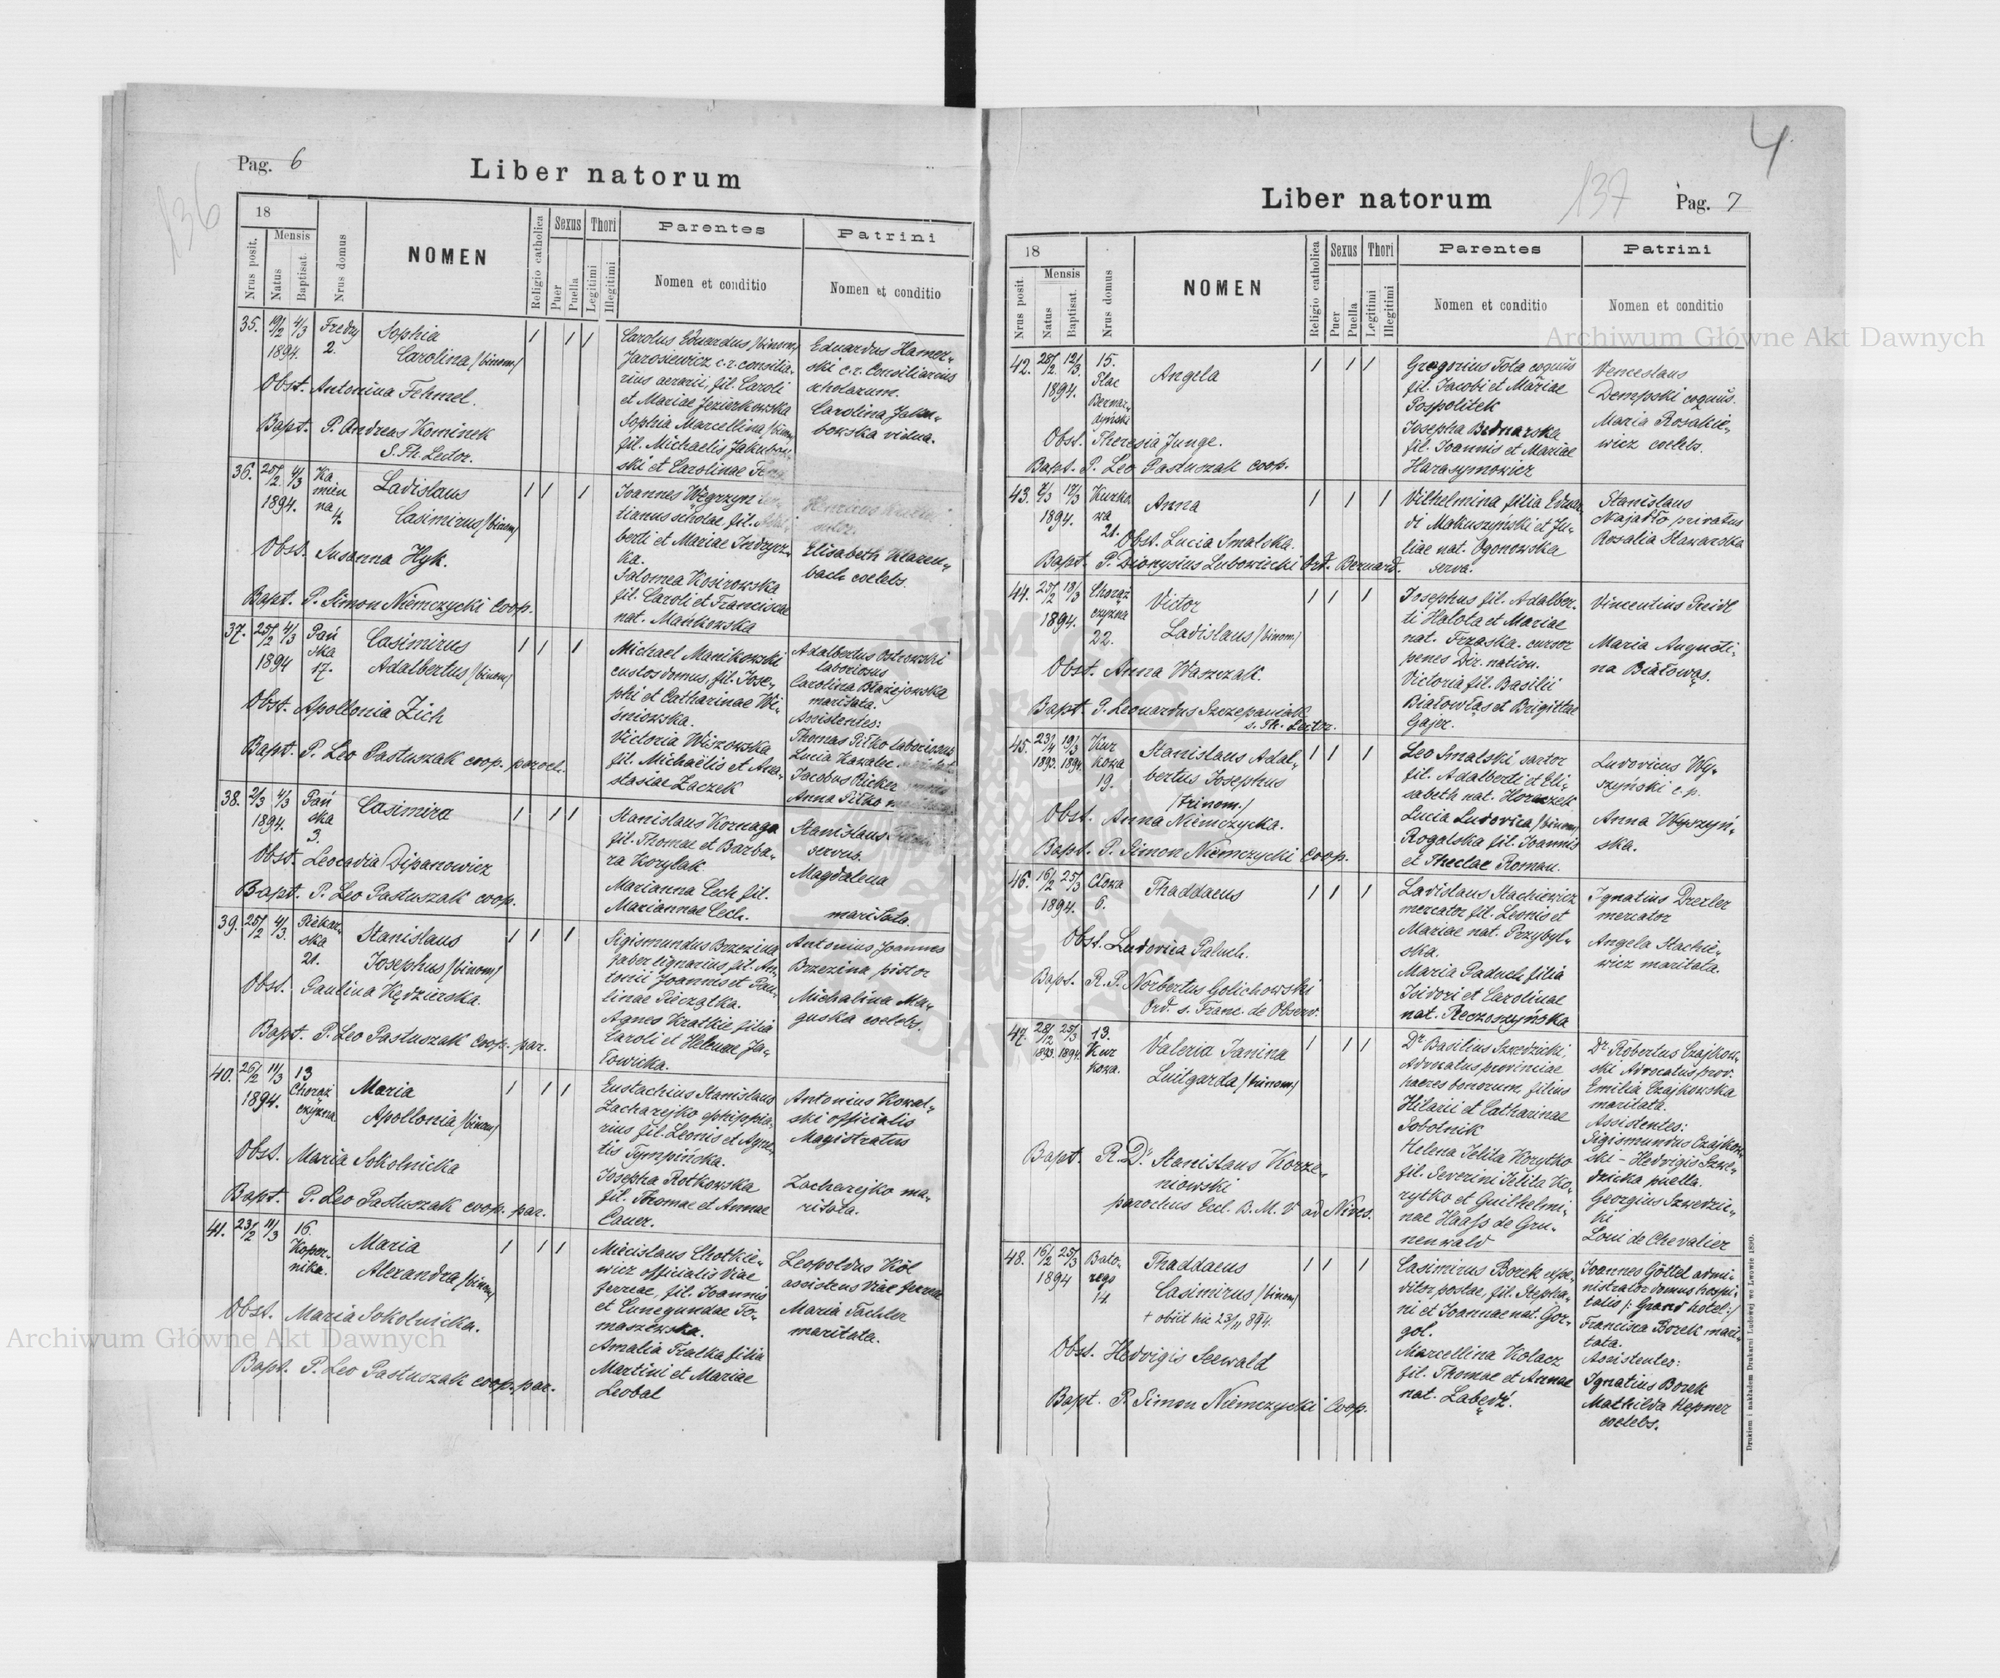 Pag. 6
Liber natorum
136
18
Nrus posit.
Mensis
Natus
Baptisat.
Nrus domus
NOMEN
Religio catholica
Sexus
Puer
Puella
Thori
Legitimi
Illegitimi
Parentes
Nomen et conditio
Patrini
Nomen et conditio
35. 19/2 4/3 Fredry
1894. 2.
Sophia
Carolina /binom/
Obst. Antonina Fehmel.
Bapt. P. Andreas Kominek
S. Th. Lector.
Carolus Eduardus /binom/
Jarosiewicz c. r. consilia-
rius aerarii, fil. Caroli
et Mariae Jezierkowska
Sophia Marcellina /binom/
fil. Michaelis Jakubow-
ski et Carolinae
Eduardus Hamer-
ski c. r. Consiliarius
scholarum.
Carolina Jaku-
bowska vidua.
36. 25/2 4/3 Ka
1894. mien
na 4.
Ladislaus
Casimirus /binom/
Obst. Susanna Hyk.
Bapt. P. Simon Niemczycki Coop.
Joannes Węgrzyn
tianus scholae, fil. Adal-
berti et Mariae Indrycz-
ka.
Salomea Kosirowska
fil. Caroli et Franciscae
nat. Mańkowska
Elisabeth Klaren-
bach coelebs.
37. 25/2 4/3 Pań
1894 ska
17.
Casimirus
Adalbertus /binom/
Obst. Apollonia Zich
Bapt. P. Leo Pastuszak coop. paroch.
Michael Manikowski
custos domus, fil. Jose-
phi et Catharinae Wi-
śniowska.
Victoria Wiszowska
fil. Michaëlis et Ana-
stasiae Zaczek
Adalbertus Ostrowski
laboriosus
Carolina Błażejowska
maritata.
Assistentes:
Thomas Piłko laboriosus
Lucia Kawalec
Jacobus Rieker
Anna Piłko
38. 2/3 4/3 Pań
1894. ska
3.
Casimira
Obst. Leocadia Dipanowicz
Bapt. P. Leo Pastuszak coop.
Stanislaus Kornaga
fil. Thomae et Barba-
ra Korylak
Marianna Cech fil.
Mariannae Cech.
Stanislaus
servus.
Magdalena
maritata.
39. 25/2 4/3. Piekar-
ska
21.
Stanislaus
Josephus /binom/
Obst. Paulina Kędzierska.
Bapt. P. Leo Pastuszak coop. par.
Sigismundus Brzezina
faber lignarius, fil. An-
tonii Joannis et Pau-
linae Pieczątka.
Agnes Kratkie filia
Caroli et Helenae Ja-
łowicka.
Antonius Joannes
Brzezina pistor
Michalina Ma-
guska coelebs.
40. 26/2 11/3 13
1894. Chorąż
czyzna
Maria
Apollonia /binom/
Obst. Maria Sokolnicka
Bapt. P. Leo Pastuszak coop. par.
Eustachius Stanislaus
Zacharejko ephippia-
rius fil. Leonis et Agne-
tis Tympińska.
Josepha Rotkowska
fil. Thomae et Annae
Cauer.
Antonius Kowal-
ski officialis
Magistratus
Zacharejko ma-
ritata.
41. 23/2 11/3 16.
Koper-
nika.
Maria
Alexandra /binom/
Obst. Maria Sokolnicka.
Bapt. P. Leo Pastuszak coop. par.
Miecislaus Chotkie-
wicz officialis viae
ferreae, fil. Joannis
et Cunegundae To-
maszewska.
Amalia Fialka filia
Martini et Mariae
Leobal
Leopoldus Köl
assistens viae ferreae
Maria Tachler
maritata.
4
Liber natorum
137
Pag. 7
18
Nrus posit
Mensis
Natus
Baptisat.
Nrus domus
NOMEN
Religio catholica
Sexus
Puer
Puella
Thori
Legitimi
Illegitimi
Parentes
Nomen et conditio
Patrini
Nomen et conditio
42. 25/2. 12/3. 15.
1894. Plac
Bernar-
dyński
Angela
Obst. Theresia Junge.
Bapt. P. Leo Pastuszak coop.
Gregorius Tota coquus
fil. Jacobi et Mariae
Pospolitek
Josepha Bednarska
fil. Joannis et Mariae
Harasymowicz
Venceslaus
Dempski coquus.
Maria Rosakie-
wicz coelebs.
43. 7/3 17/3 Kurko
1894. wa
21.
Anna
Obst. Lucia Smalska.
Bapt. P. Dionysius Lubowiecki Ord. Bernard.
Vilhelmina filia Edwar-
di Makuszyński et Ju-
liae nat. Ogonowska
serva.
Stanislaus
Majatło privatus
Rosalia Hawarska
44. 25/2 18/3 Chorąż
1894. czyzna
22.
Victor
Ladislaus /binom/
Obst. Anna Waszczak.
Bapt. P. Leonardus Szczepaniak
s. Th. Lector.
Josephus fil. Adalber-
ti Halota et Mariae
nat. Frzaska. cursor
penes Dir. nation.
Victoria fil. Basilii
Białowłąs et Brigittae
Gajer.
Vincentius Reidl
Maria Augusti-
na Białowąs.
45. 23/4 19/3 Kur
1893. 1894. kowa
19.
Stanislaus Adal-
bertus Josephus
/trinom./
Obst. Anna Niemczycka.
Bapt. P. Simon Niemczycki Coop.
Leo Smalski sartor
fil. Adalberti et Eli-
sabeth nat. Horaczek
Lucia Ludovica /binom/
Rogalska fil. Joannis
et Theclae Roman.
Ludovicus Wy-
szyński c. p.
Anna Wyszyń-
ska.
46. 16/2 25/3 Cłowa
1894. 6.
Thaddaeus
Obst. Ludovica Paluch.
Bapt. R. P. Norbertus Golichowski
Ord. s. Franc. de Observ.
Ladislaus Stachiewicz
mercator fil. Leonis et
Mariae nat. Przybyl-
ska.
Maria Paduch filia
Isidori et Carolinae
nat. Reczoszyńska
Ignatius Drexler
mercator
Angela Stachie-
wicz maritata.
47. 28/12 25/3 13.
1893. 1894. Kur
kowa.
Valeria Janina
Luitgarda /trinom/
Bapt. R. Dr. Stanislaus Korze-
niowski
parochus Eccl. B. M. V. ad Nives.
Dr Basilius Szwedzicki,
Advocatus provinciae
haeres bonorum, filius
Hilarii et Catharinae
Sobolnik
Helena Jelita Korytko
fil. Severini Jelita Ko-
rytko et Guilhelmi-
nae Haass de Gru-
nenwald
Dr. Robertus Czajkow-
ski Advocatus prov.
Emilia Czajkowska
maritata.
Assistentes:
Sigismundus Czajkow-
ski - Hedvigis Szwe-
dzicka puella.
Georgius Szwedzic-
ki
Loui de Chevalier
48. 16/2 25/3 Bato-
1894 rego
14
Thaddaeus
Casimirus /binom/
+ obiit hic 23/11 894.
Obst. Hedvigis Seewald
Bapt. P. Simon Niemczycki Coop.
Casimirus Borek expe-
ditor postae, fil. Stepha-
ni et Joannae nat. Gor-
gol.
Marcellina Kolacz
fil. Thomae et Annae
nat. Łabędź.
Joannes Göttel admi-
nistrator domus hospi-
talis /: Grand hotel :/
Francisca Borek mari-
tata.
Assistentes:
Ignatius Borek
Mathilda Hepner
coelebs.
Drukiem i nakładem Drukarni Ludowej we Lwowie 1890.
Archiwum Główne Akt Dawnych
Archiwum Główne Akt Dawnych